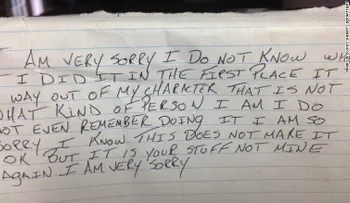 AM VERY SORRY I DO NOT KNOW
I DID IT IN THE FIRST PLACE IT
WAY OUT OF MY CHARKTER THAT IS NOT
WHAT KIND OF PERSON I AM I DO
NOT EVEN REMEMBER DOING IT I AM SO
SORRY I KNOW THIS DOES NOT MAKE IT
OK BUT IT IS YOUR STUFF NOT MINE
AGAIN I AM VERY SORRY